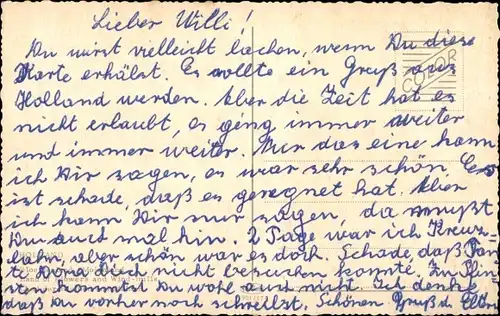 Lieber Willi!
Du wirst vielleicht lachen, wenn Du diese
Karte erhälst. Es sollte ein Gruß aus
COLOR
Holland werden. Aber die Zeit hat es
nicht erlaubt, es ging immer weiter
und immer weiter. Nur das eine kann
ich Dir sagen, es war sehr schön. Es
ist schade, daß es geregnet hat. Aber
ich kann Dir nur sagen, da mußt
Du auch mal hin. 2 Tage war ich
aber schön war es doch. Schade, daß Tan-
te Dora Dich nicht besuchen konnte. Zu
kommst Du wohl auch nicht. Ich denke
daß Du vorher noch schreibst. Schönen Gruß d. Eltern